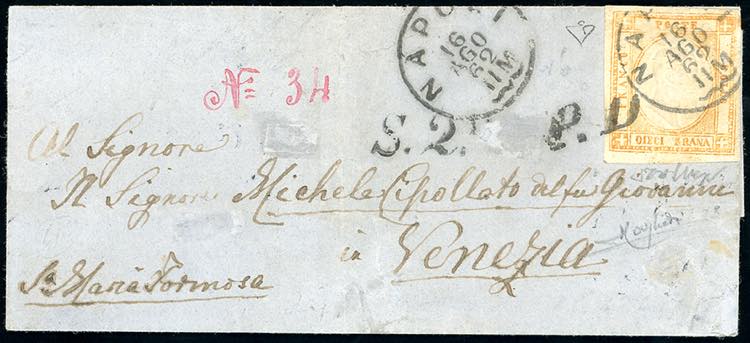 NAPOLI
16
AGO
62
11 M
POSTE
NAPOLI
16
AGO
62
11 M
DIECI GRANA
Nº 34
S. 2.
P. D
Al Signore
Il Signore Michele Cipollato del fu Giovanni
in Venezia
Sª Maria Formosa